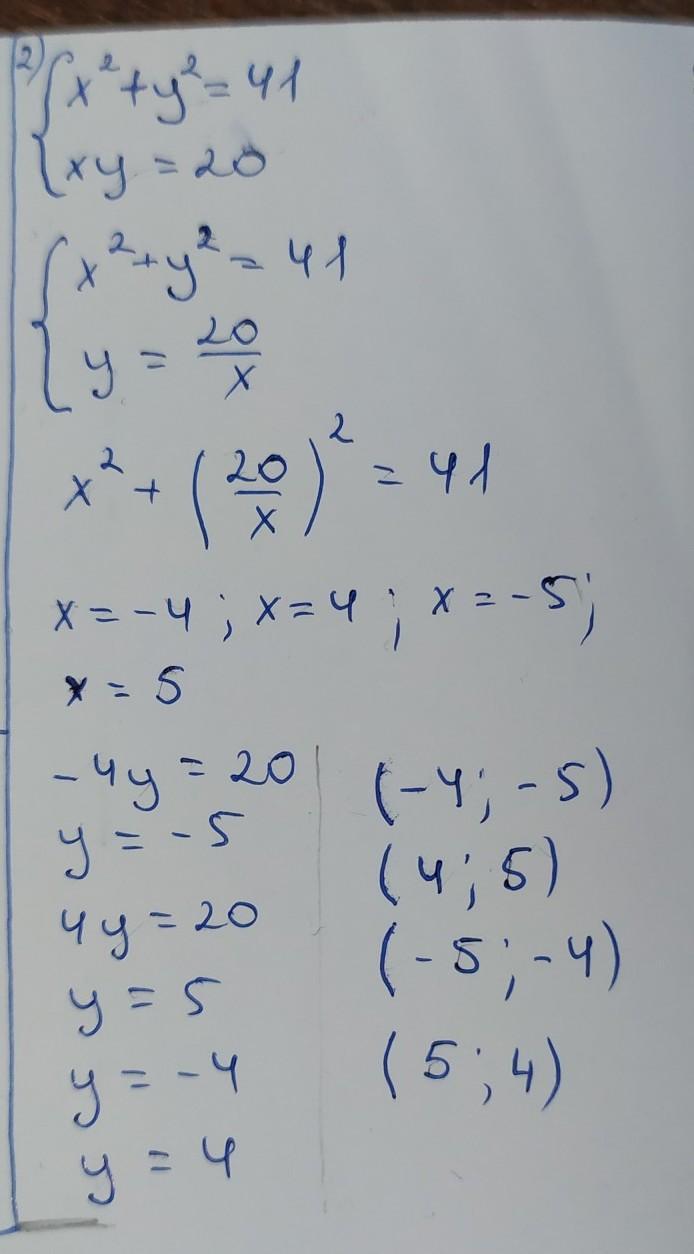 2) { x² + y² = 41
xy = 20
{ x² + y² = 41
y = 20/x
x² + (20/x)² = 41
x = -4 ; x = 4 ; x = -5;
x = 5
-4y = 20
y = -5
4y = 20
y = 5
y = -4
y = 4
(-4; -5)
(4; 5)
(-5; -4)
(5; 4)